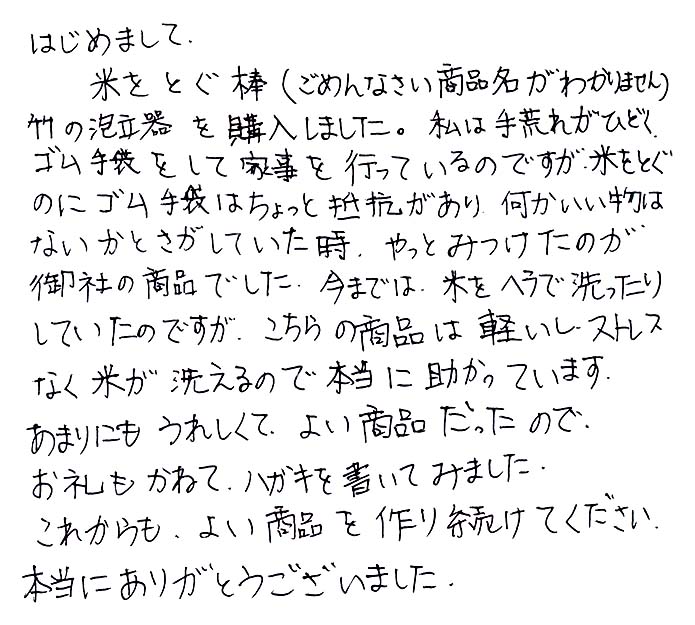 はじめまして.
米をとぐ棒(ごめんなさい商品名がわかりません)
竹の泡立器を購入しました。私は手荒れがひどく
ゴム手袋をして家事を行っているのですが.米をとぐ
のにゴム手袋はちょっと抵抗があり.何かいい物は
ないかとさがしていた時.やっとみつけたのが
御社の商品でした.今までは.米をヘラで洗ったり
していたのですが.こちらの商品は軽いし.ストレス
なく米が洗えるので本当に助かっています.
あまりにもうれしくて.よい商品だったので.
お礼もかねて.ハガキを書いてみました.
これからも.よい商品を作り続けてください.
本当にありがとうございました.